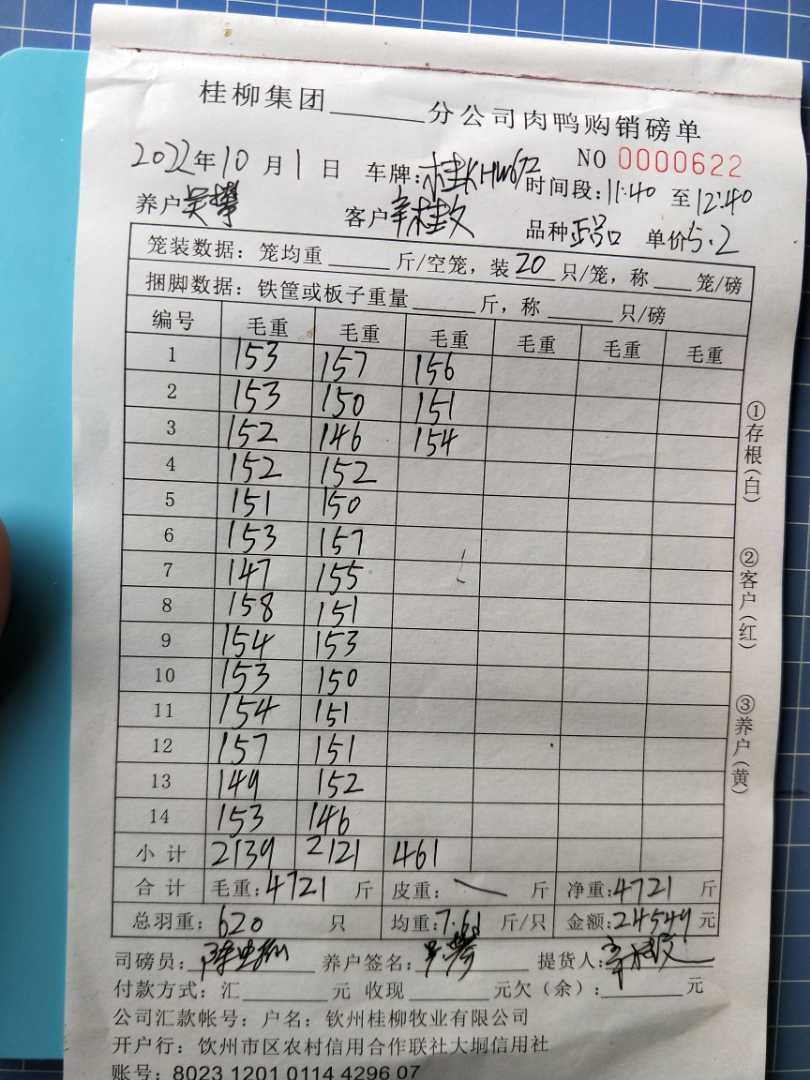 桂柳集团______分公司肉鸭购销磅单
NO 0000622
2022年10月1日 车牌:桂KHW672 时间段:11:40 至 12:40
养户 吴攀 客户 辛桂文 品种 单价 5.2
笼装数据: 笼均重 ____ 斤/空笼, 装 20 只/笼, 称 ___ 笼/磅
捆脚数据: 铁筐或板子重量 ____ 斤, 称 ____ 只/磅
编号 毛重 毛重 毛重 毛重 毛重 毛重
1 153 157 156
2 153 150 151
3 152 146 154
4 152 152
5 151 150
6 153 157
7 147 155
8 158 151
9 154 153
10 153 150
11 154 151
12 157 151
13 149 152
14 153 146
小计 2139 2121 461
合计 毛重:4721 斤 皮重: 斤 净重:4721 斤
总羽重: 620 只 均重:7.61 斤/只 金额:24549 元
司磅员: 养户签名: 提货人:辛桂文
付款方式: 汇______元 收现______元欠(余):______元
公司汇款帐号: 户名: 钦州桂柳牧业有限公司
开户行: 钦州市区农村信用合作联社大垌信用社
账号: 8023 1201 0114 4296 07
①存根(白)
②客户(红)
③养户(黄)